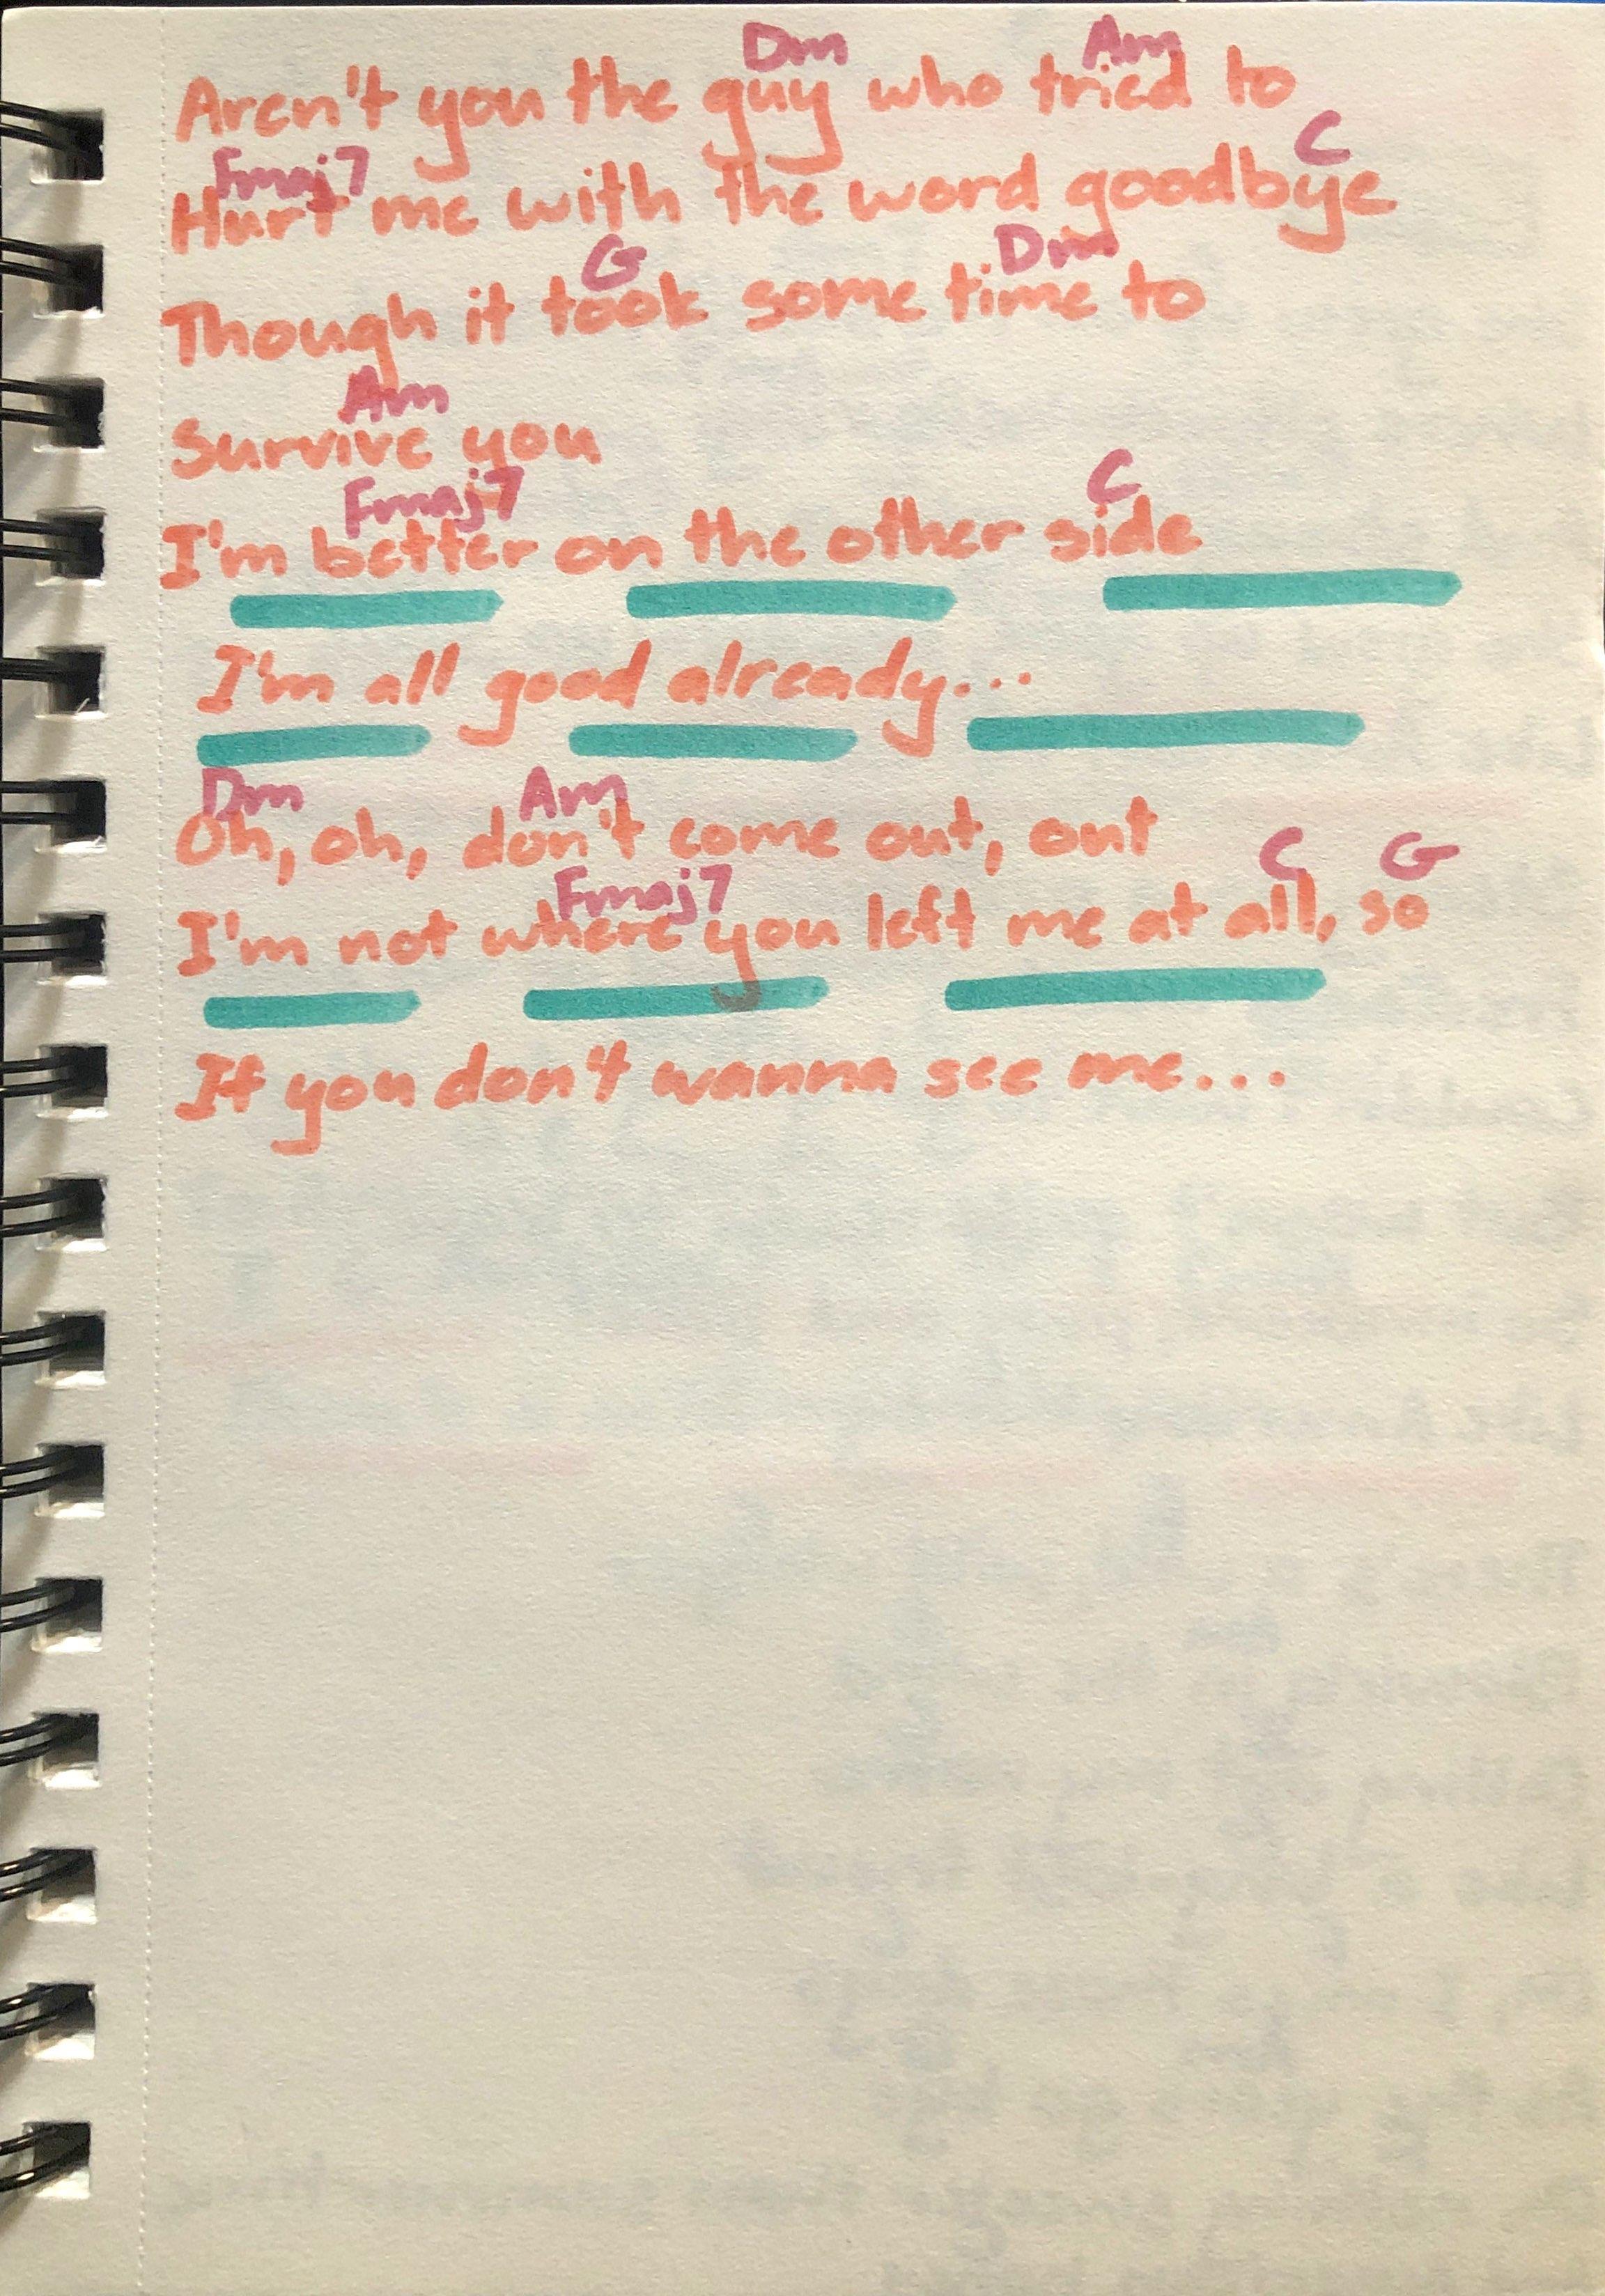 Dm Am
Aren't you the guy who tried to
Fmaj7 C
Hurt me with the word goodbye
G Dm
Though it took some time to
Am
Survive you
Fmaj7 C
I'm better on the other side
I'm all good already...
Dm Am
Oh, oh, don't come out, out
Fmaj7 C G
I'm not where you left me at all, so
If you don't wanna see me...